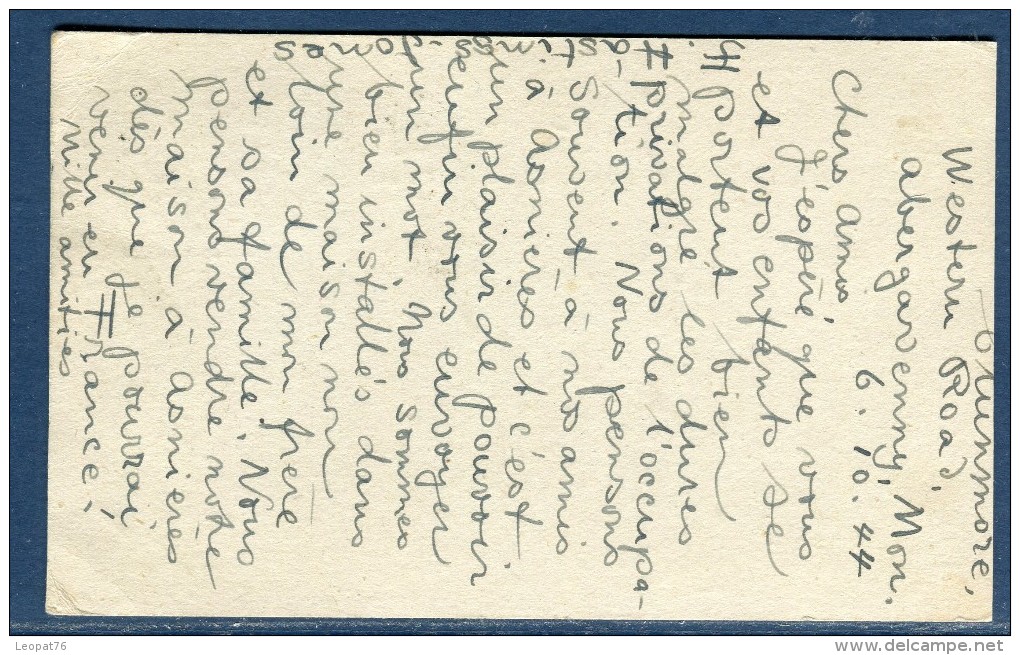 Drummore,
Western Road,
Abergavenny, Mon.
6.10.44
Chers Amis
J'espère que vous
et vos enfants se
portent bien
malgré les dures
privations de l'occupa-
-tion. Nous pensons
souvent à nos amis
à Asnieres et c'est
un plaisir de pouvoir
enfin vous envoyer
un mot. Nous sommes
bien installés dans
une maison non
loin de mon frère
et sa famille. Nous
pensons vendre notre
maison à Asnières
dès que je pourrai
venir en France.
Mille amities
H. Hastings-Jones
Leopat76
www.delcampe.net